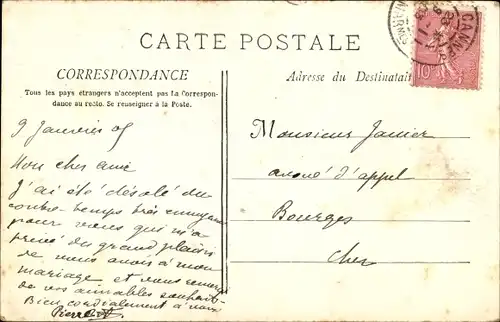 CARTE POSTALE
CORRESPONDANCE
Tous les pays étrangers n'acceptent pas la Correspon-
dance au recto. Se renseigner à la Poste.
Adresse du Destinatai
CANN
10
9 Janvier 05
Mon cher ami
J'ai été désolé du
contre-temps très ennuyeux
pour vous qui m'a
privé du grand plaisir
de vous avoir à mon
mariage et vous remercie
de vos aimables souhaits.
Bien cordialement à vous
Pierre
Monsieur Janier
avoué d'appel
Bourges
Cher